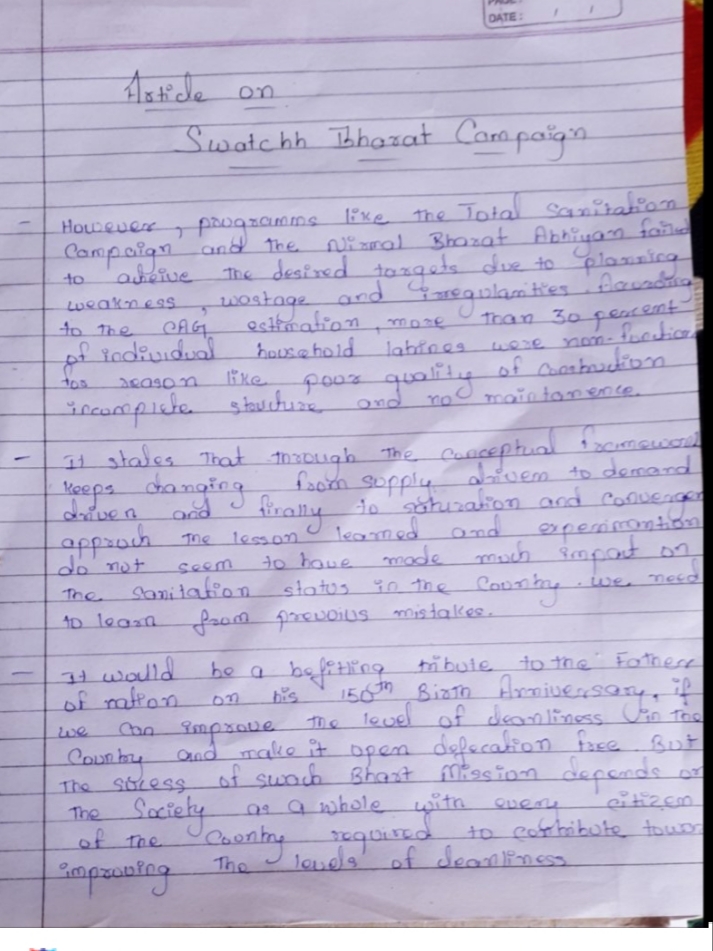 DATE: / /
Article on
Swatchh Bharat Campaign
- However, programms like the Total Sanitation
Campaign and the Nirmal Bharat Abhiyan failed
to acheive the desired targets due to planning
weakness, wastage and irregularities. According
to the CAG estimation, more than 30 percent
of individual household latrines were non-function
for reason like poor quality of construction
incomplete structure and no maintanence.
- It states that through the conceptual framework
keeps changing from supply drivem to demand
driven and finally to saturation and convergen
approch the lesson learned and experimantion
do not seem to have made much impact on
the sanitation status in the Country. we need
to learn from prevoius mistakes.
- It would be a befitting tribute to the Father
of nation on his 150th Birth Anniversary, if
we can improve the level of cleanliness in the
Country and make it open defecation free. But
the sucess of swach Bhart Mission depends on
the Society as a whole with every citizen
of the Country required to contribute towar
improving the levels of cleanliness